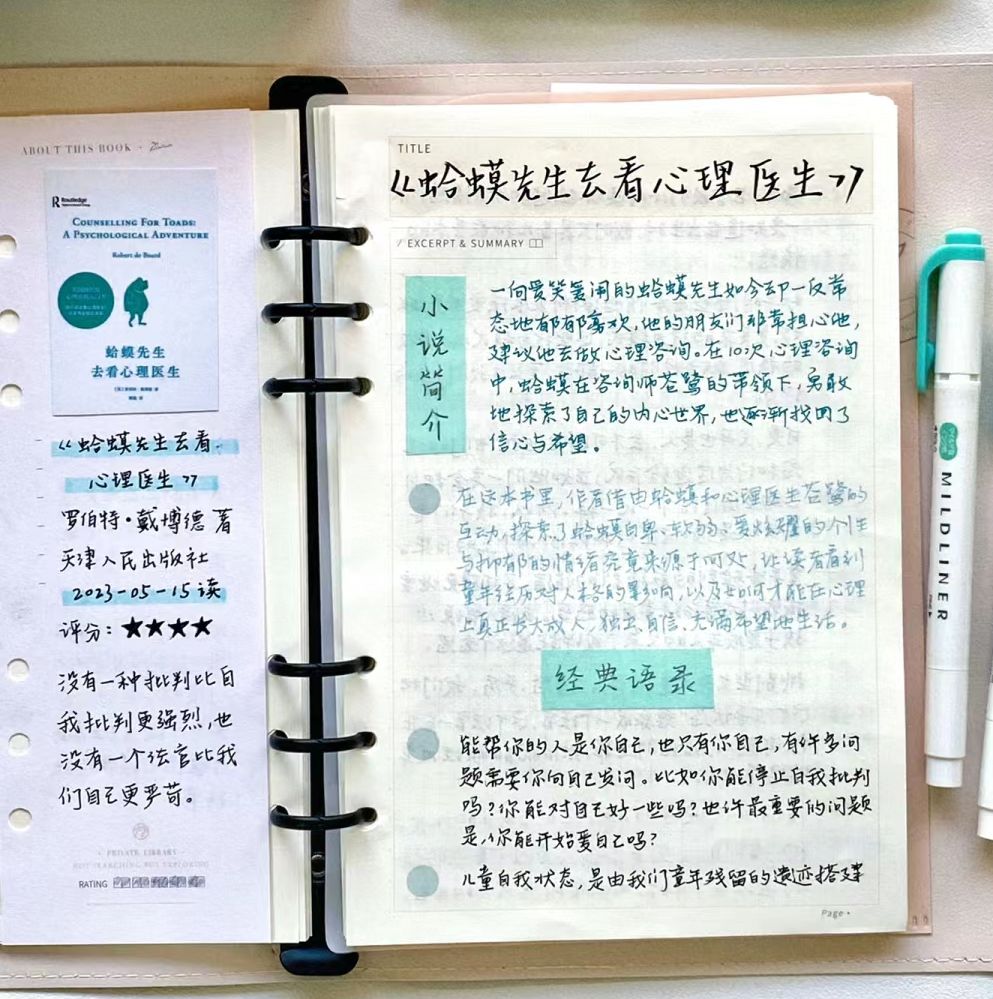 ABOUT THIS BOOK
Routledge
COUNSELLING FOR TOADS:
A PSYCHOLOGICAL ADVENTURE
Robert de Board
蛤蟆先生
去看心理医生
《蛤蟆先生去看
心理医生》
罗伯特·戴博德 著
天津人民出版社
2023-05-15读
评分：★★★★
没有一种批判比自
我批判更强烈，也
没有一个法官比我
们自己更严苛。
PRIVATE LIBRARY
RATING
TITLE
《蛤蟆先生去看心理医生》
EXCERPT & SUMMARY
小说简介
一向爱笑爱闹的蛤蟆先生如今却一反常
态地郁郁寡欢，他的朋友们非常担心他，
建议他去做心理咨询。在10次心理咨询
中，蛤蟆在咨询师苍鹭的带领下，勇敢
地探索了自己的内心世界，也逐渐找回了
信心与希望。
在这本书里，作者借由蛤蟆和心理医生苍鹭的
互动，探索了蛤蟆自卑、软弱、爱炫耀的个性
与抑郁的情绪究竟来源于何处，让读者看到
童年经历对人格的影响，以及如何才能在心理
上真正长大成人，独立、自信、充满希望地生活。
经典语录
能帮你的人是你自己，也只有你自己，有许多问
题需要你向自己发问。比如你能停止自我批判
吗？你能对自己好一些吗？也许最重要的问题
是，你能开始爱自己吗？
儿童自我状态，是由我们童年残留的遗迹搭建
Page
MILDLINER